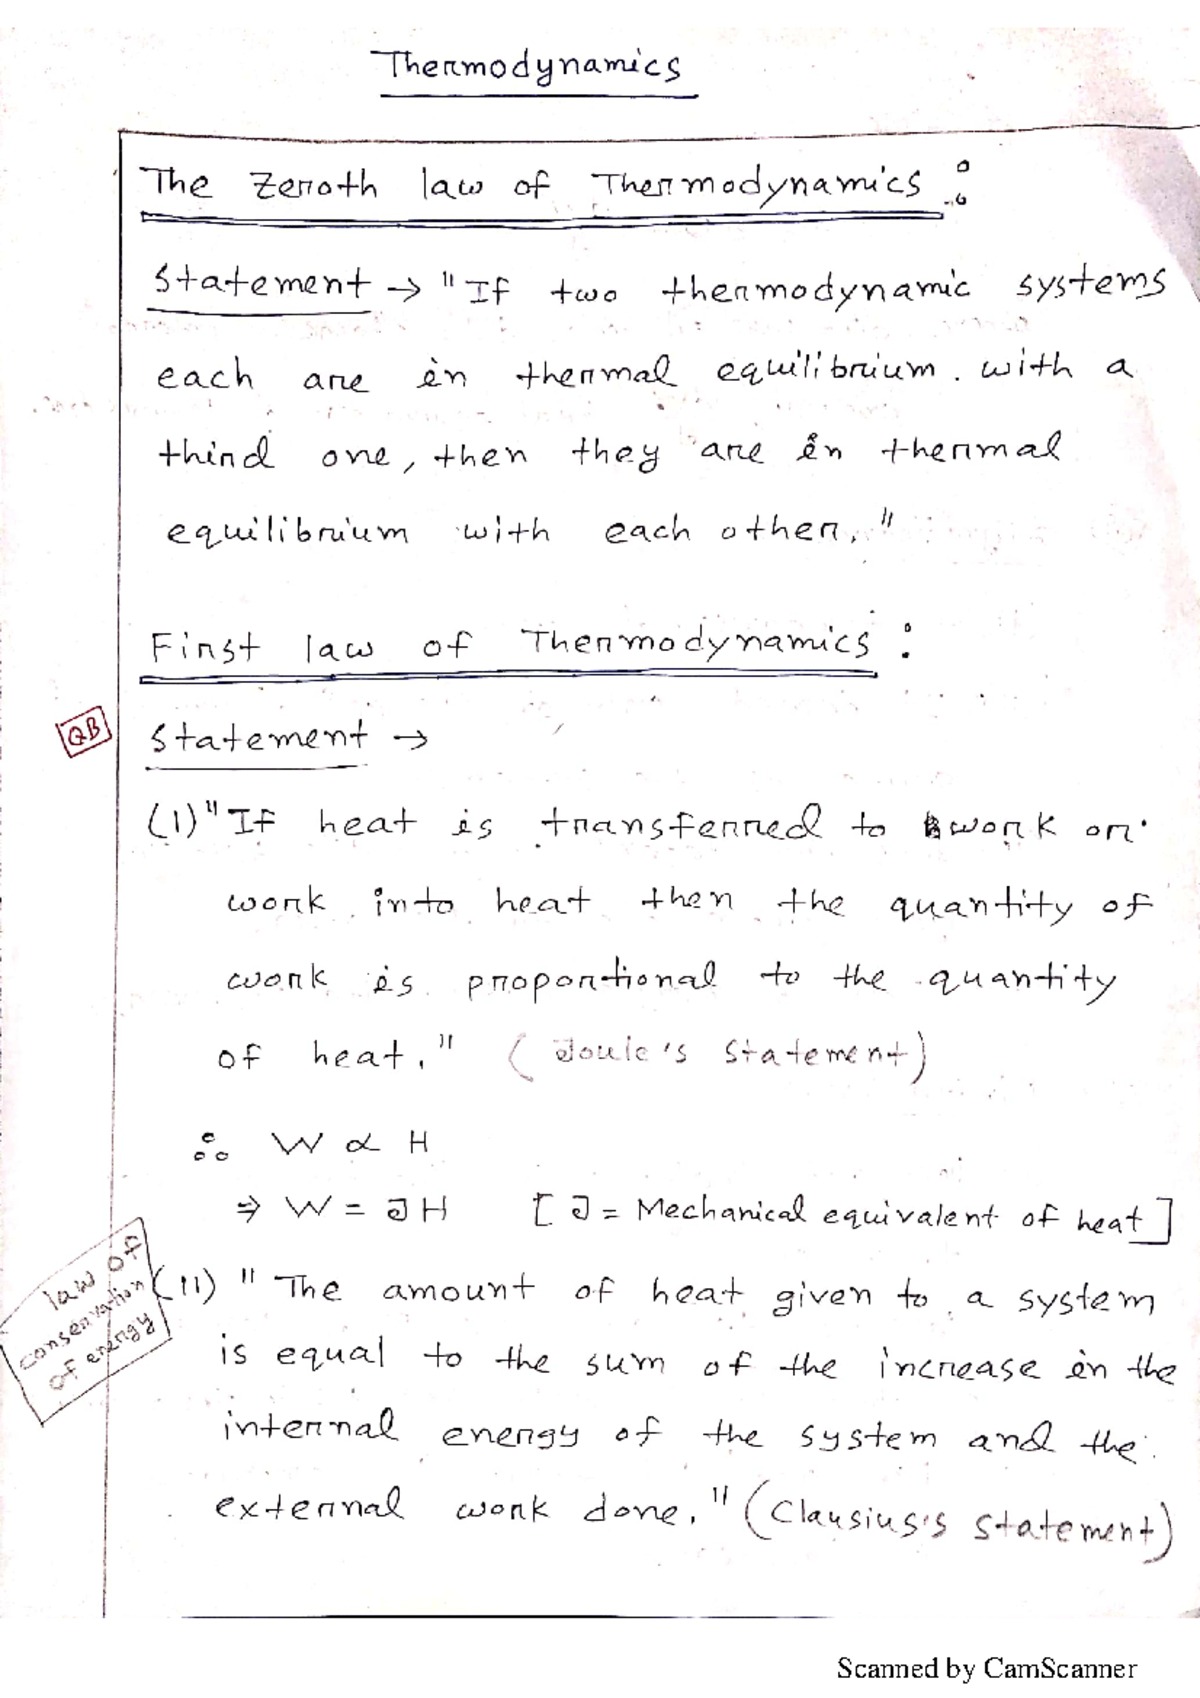 Thermodynamics
The Zeroth law of Thermodynamics :
Statement → "If two thermodynamic systems
each are in thermal equilibrium. with a
third one, then they are in thermal
equilibrium with each other."
First law of Thermodynamics :
QB
Statement →
(I) "If heat is transferred to work or
work into heat then the quantity of
work is proportional to the quantity
of heat." (Joule's Statement)
∴ W ∝ H
⇒ W = JH [J = Mechanical equivalent of heat]
law of
conservation
of energy
(II) "The amount of heat given to a system
is equal to the sum of the increase in the
internal energy of the system and the
external work done." (Clausius's statement)
Scanned by CamScanner